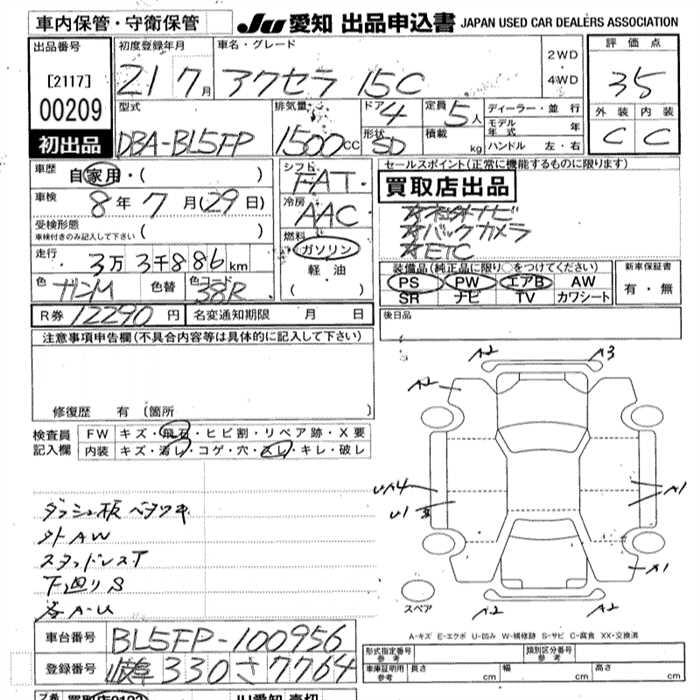 車内保管・守衛保管 JU 愛知 出品申込書 JAPAN USED CAR DEALERS ASSOCIATION
出品番号 初度登録年月 車名・グレード 2WD 評価点
[2117] 21 7月 アクセラ 15C 4WD 35
00209 型式 排気量 ドア 4 定員 5人 ディーラー・並行 外装 内装
初出品 DBA-BL5FP 1500cc 形状 SD 積載 kg モデル年式 年 C C
ハンドル 左・右
車歴 自家用・( ) シフト FAT セールスポイント(正常に機能するものに限ります)
車検 8年7月(29日) 冷房 AAC 買取店出品
受検形態 オ社外ナビ
車検付きのみ記入して下さい ( ) 燃料 オバックカメラ
走行 3万3千886km ガソリン オETC
軽油 装備品(純正品に限り○をつけてください) 新車保証書
色 ガンM 色替 色コード 38R ( ) PS PW エアB AW 有・無
SR ナビ TV カワシート
R券 12290円 名変通知期限 月 日 後日品
注意事項申告欄(不具合内容等は具体的に記入して下さい)
修復歴 有 (箇所 )
検査員 FW キズ・飛石・ヒビ割・リペア跡・X要
記入欄 内装 キズ・汚レ・コゲ・穴・スレ・キレ・破レ
A2 A3
A2
UA4 A1
U1
A1
A2 A2
スペア
ダッシュ板ベタツキ
外AW
スタッドレスT
下廻りS
各A-U
A-キズ E-エクボ U-凹み W-補修跡 S-サビ C-腐食 XX-交換済
車台番号 BL5FP-100956 形式指定番号 参考 類別区分番号 参考
登録番号 岐阜330さ7764 車庫証明用 参考 長さ cm 幅 cm 高さ cm